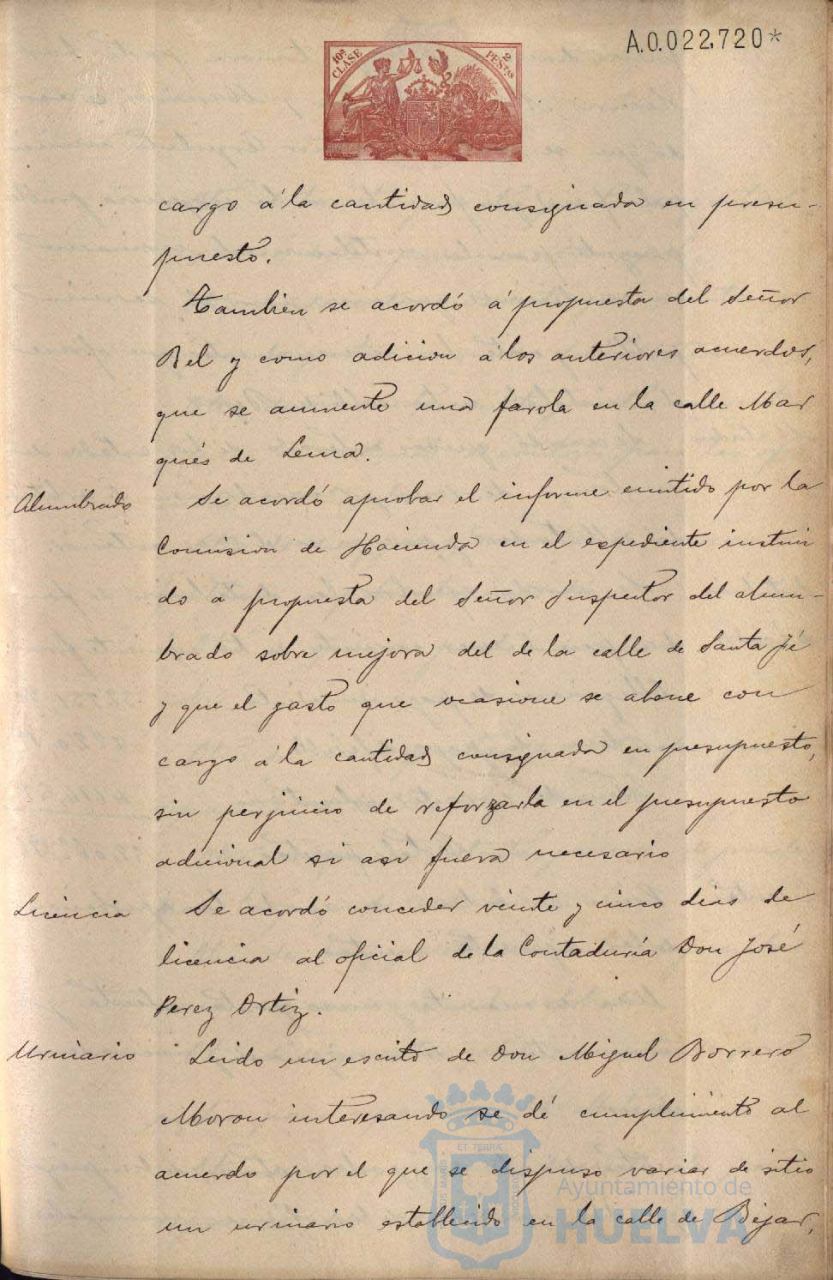 10ª CLASE 2 PESTAS
A.0.022,720*
cargo á la cantidad consignada en presu-
puesto.
Tambien se acordó á propuesta del Señor
Bel y como adicion á los anteriores acuerdos,
que se aumente una farola en la calle Mar
qués de Lema.
Alumbrado
Se acordó aprobar el informe emitido por la
Comision de Hacienda en el espediente instrui
do á propuesta del Señor Inspector del alum-
brado sobre mejora del de la calle de Santa Fé
y que el gasto que ocasione se abone con
cargo á la cantidad consignada en presupuesto,
sin perjuicio de reforzarla en el presupuesto
adicional si asi fuera necesario
Licencia
Se acordó conceder veinte y cinco dias de
licencia al oficial de la Contaduría Don José
Perez Ortiz.
Urinario
Leido un escrito de Don Miguel Borrero
Moron interesando se dé cumplimiento al
acuerdo por el que se dispuso variar de sitio
un urinario establecido en la calle de Bejar,
Ayuntamiento de
HUELVA